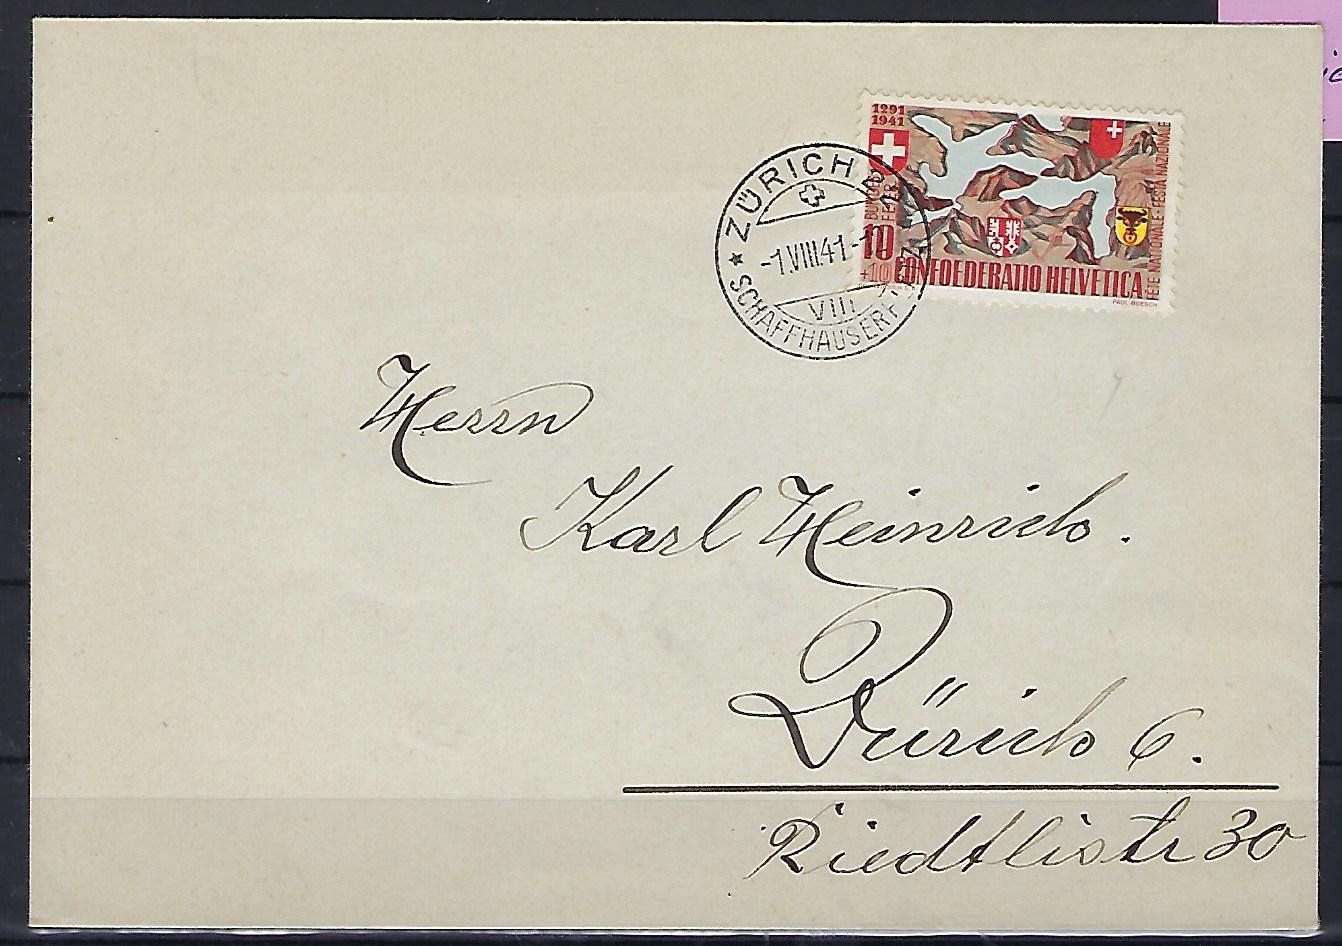 1291
1941
BUNDES
FEIER
10
+10
CONFOEDERATIO HELVETICA
FÊTE NATIONALE · FESTA NAZIONALE
PAUL BOESCH
ZÜRICH
-1.VIII 41-
VIII
★ SCHAFFHAUSERPLATZ
Herrn
Karl Heinrich.
Zürich 6.
Riedtlistr 30